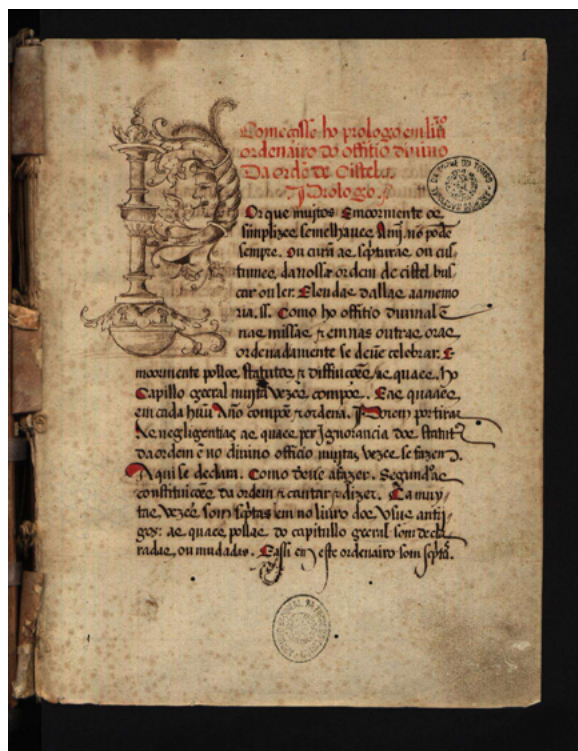 Começasse ho prologo em liuro
ordenairo do offitio diuino
Da ordē de Cistel.
Prologo.
Por que mujtos Emcormente os
simplizes semelhaues Amj. nō pode
sempre. Ou curā as scpturas ou cus-
tumes da nossa ordem de cistel bus
car ou ler. E leudas dallas a a memo
ria. ss. Como ho offitio diuinal ē
nas missas ⁊ em nas outras oras
ordenadamente se deue celebrar. E
moormente pollos statutos ⁊ diffinicoēs as quaaes. ho
Capitlo geeral mujta Vezes compōs. E as quaaes
em cada hūu Año compōe ⁊ ordena. Porem por tirar
As negligentias as quaes per Jgnorancia dos statut
da ordem ē no diuino officio mujtas Vezes se fazem.
Aqui se declara. Como deue a fazer. Segundo as
constituicoēs da ordem ⁊ cantar ⁊ dizer. Ca muy-
tas Vezes som scptas em no liuro dos Vsus anti-
gos: as quaes pollas do capitullo geeral som decla
radas, ou mudadas. E assi em este ordenairo som scpta.